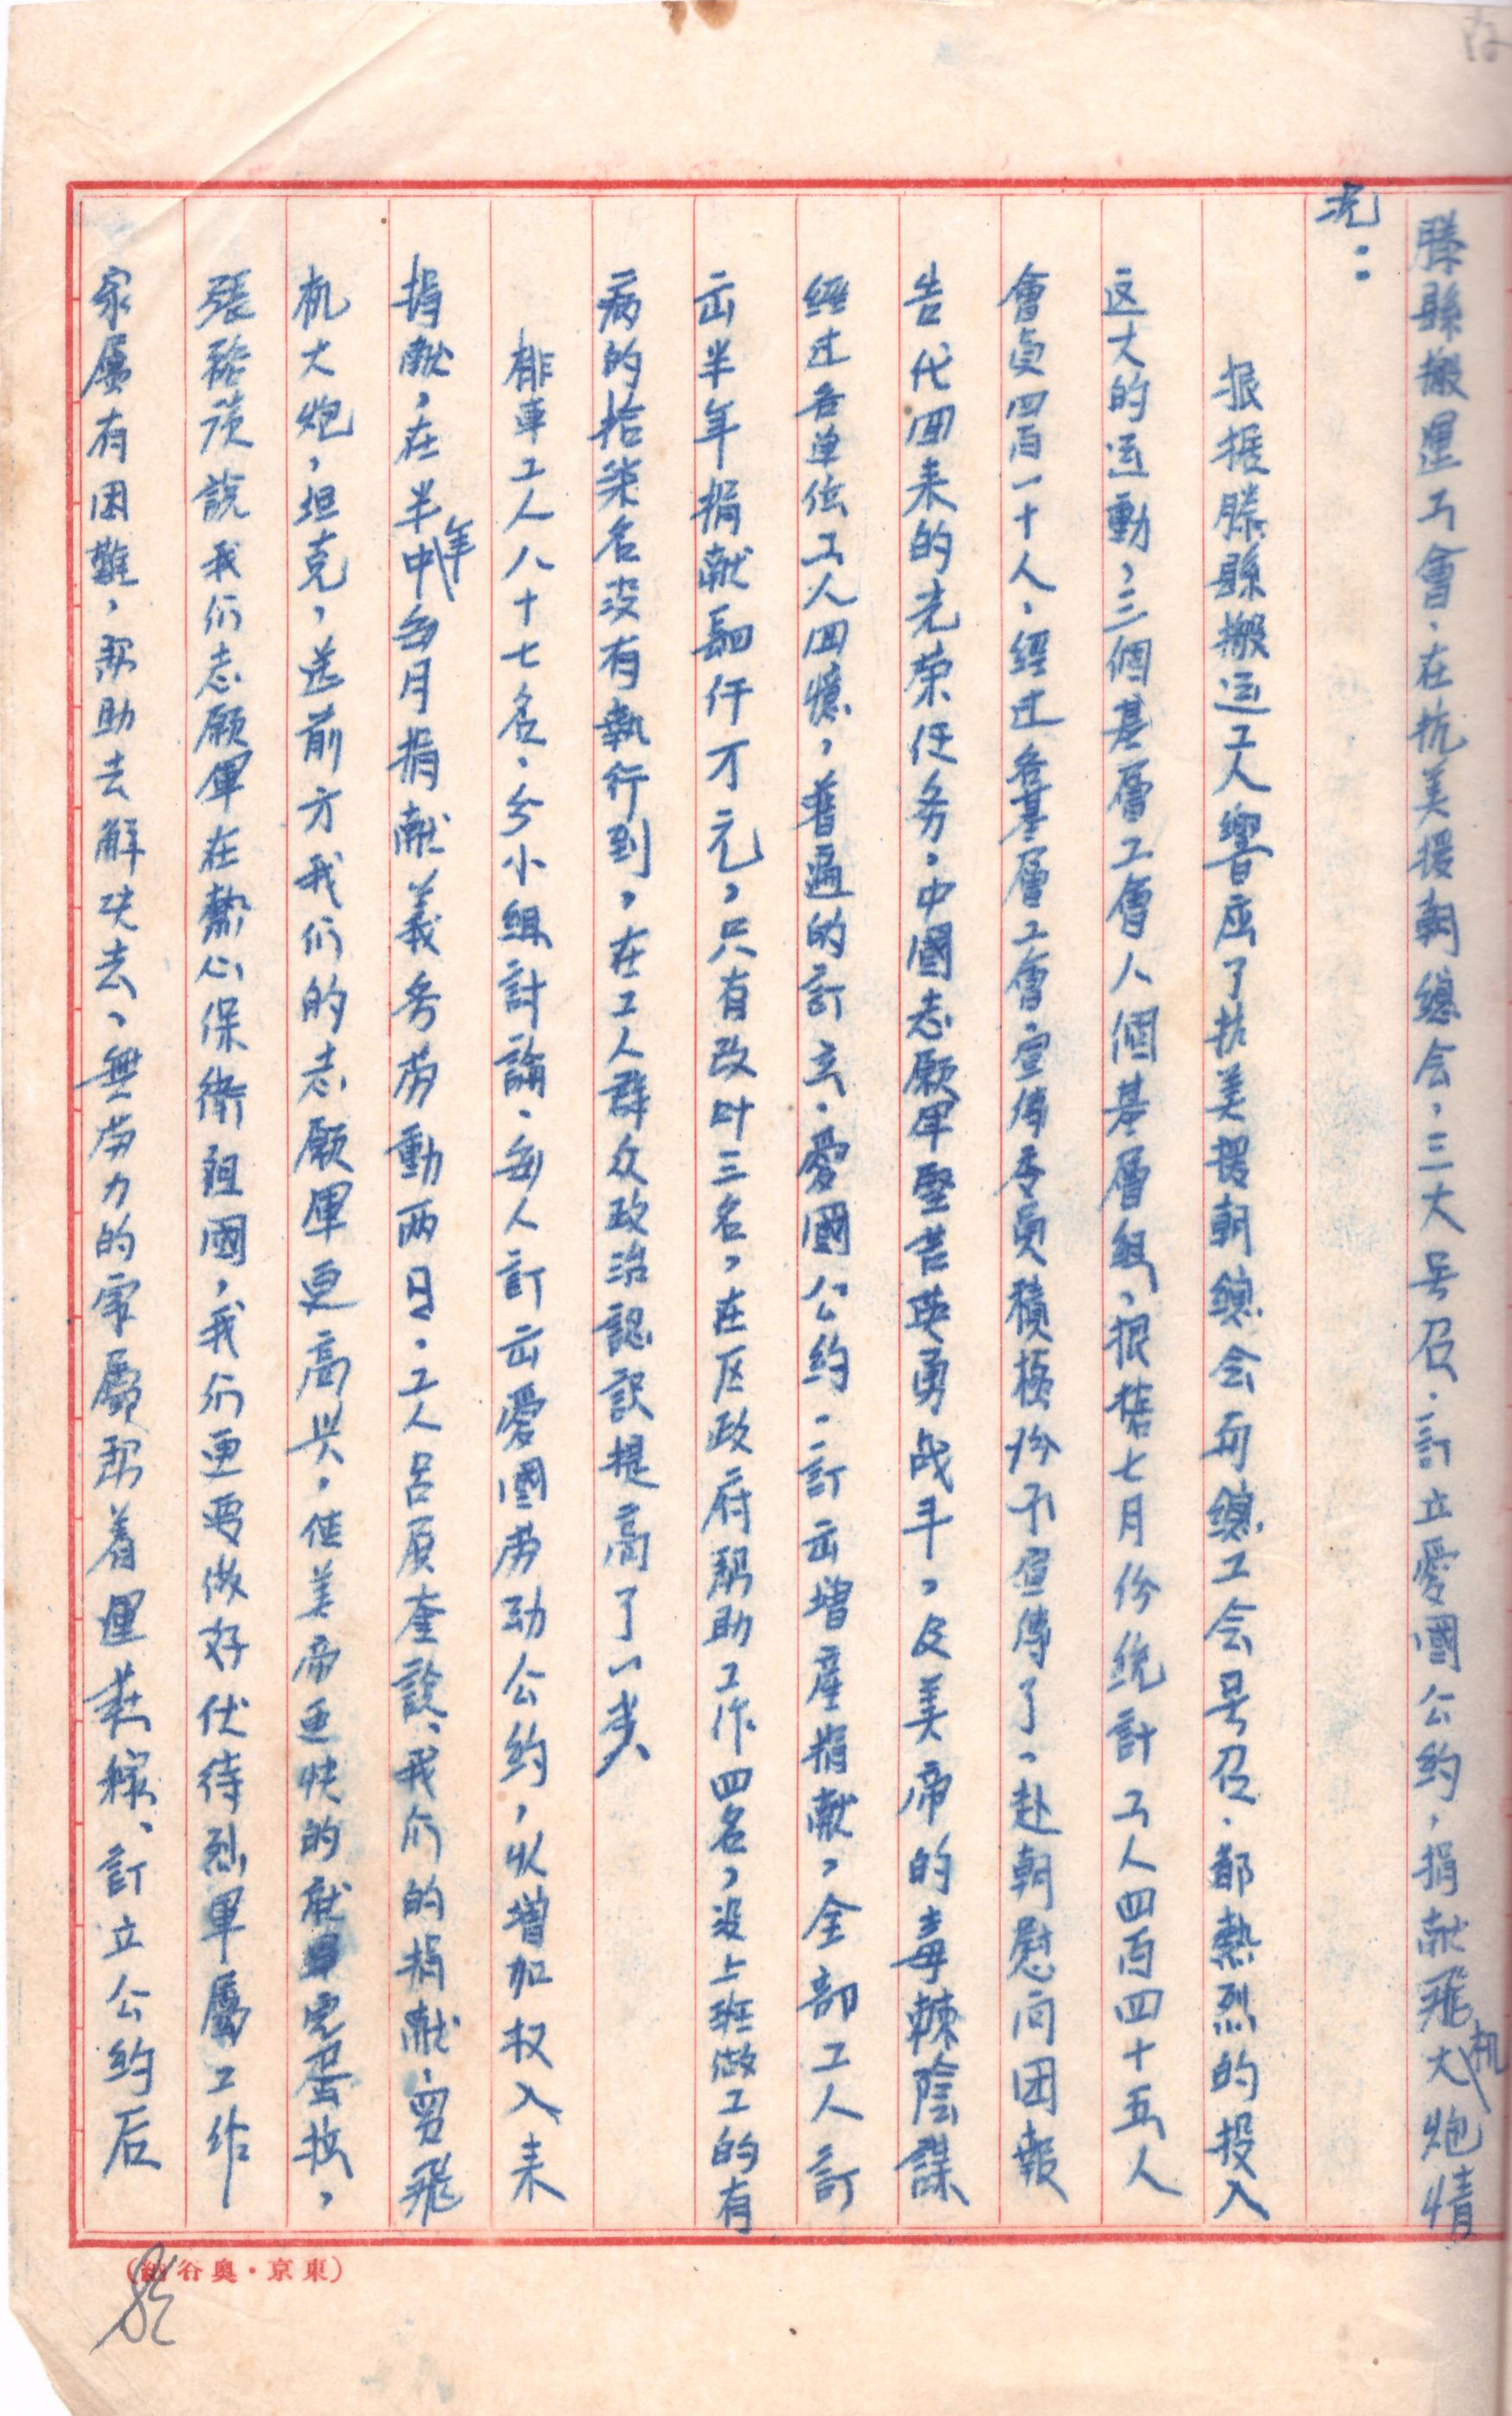 存
滕縣搬運工會、在抗美援朝總会，三大号召．訂立愛國公約，捐献飛机大炮情
况：
根据滕縣搬运工人響应了抗美援朝總会和總工会号召．都熱烈的投入
这大的运動，三個基層工會人個基層組、根据七月份統計工人四百四十五人
會員四百一十人．經过各基層工會宣傳委員積極份子宣傳了、赴朝慰问团報
告代回来的光荣任务．中國志願軍堅苦英勇战斗，及美帝的毒辣陰謀
經过各单位工人回憶，普遍的訂立．愛國公約．訂出增産捐献，全部工人訂
出半年捐献 仟万元，只有改叶三名，在区政府帮助工作四名，没上班做工的有
病的拾柒名没有執行到，在工人群众政治認识提高了一步
排車工人八十七名．分小組討論．每人訂出愛國劳动公約，以增加收入来
捐献，在半年中每月捐献義务劳動两日．工人吕 奎説、我们的捐献，買飛
机大炮，坦克，送前方我们的志願軍更高兴，使美帝更快的就 完蛋 ，
張 説我们志願軍在熱心保衛祖國，我们更要做好优待烈軍屬工作
家屬有困難，帮助去解决去，無劳力的家屬帮着運莊稼、訂立公約后
(東京・奥谷納)